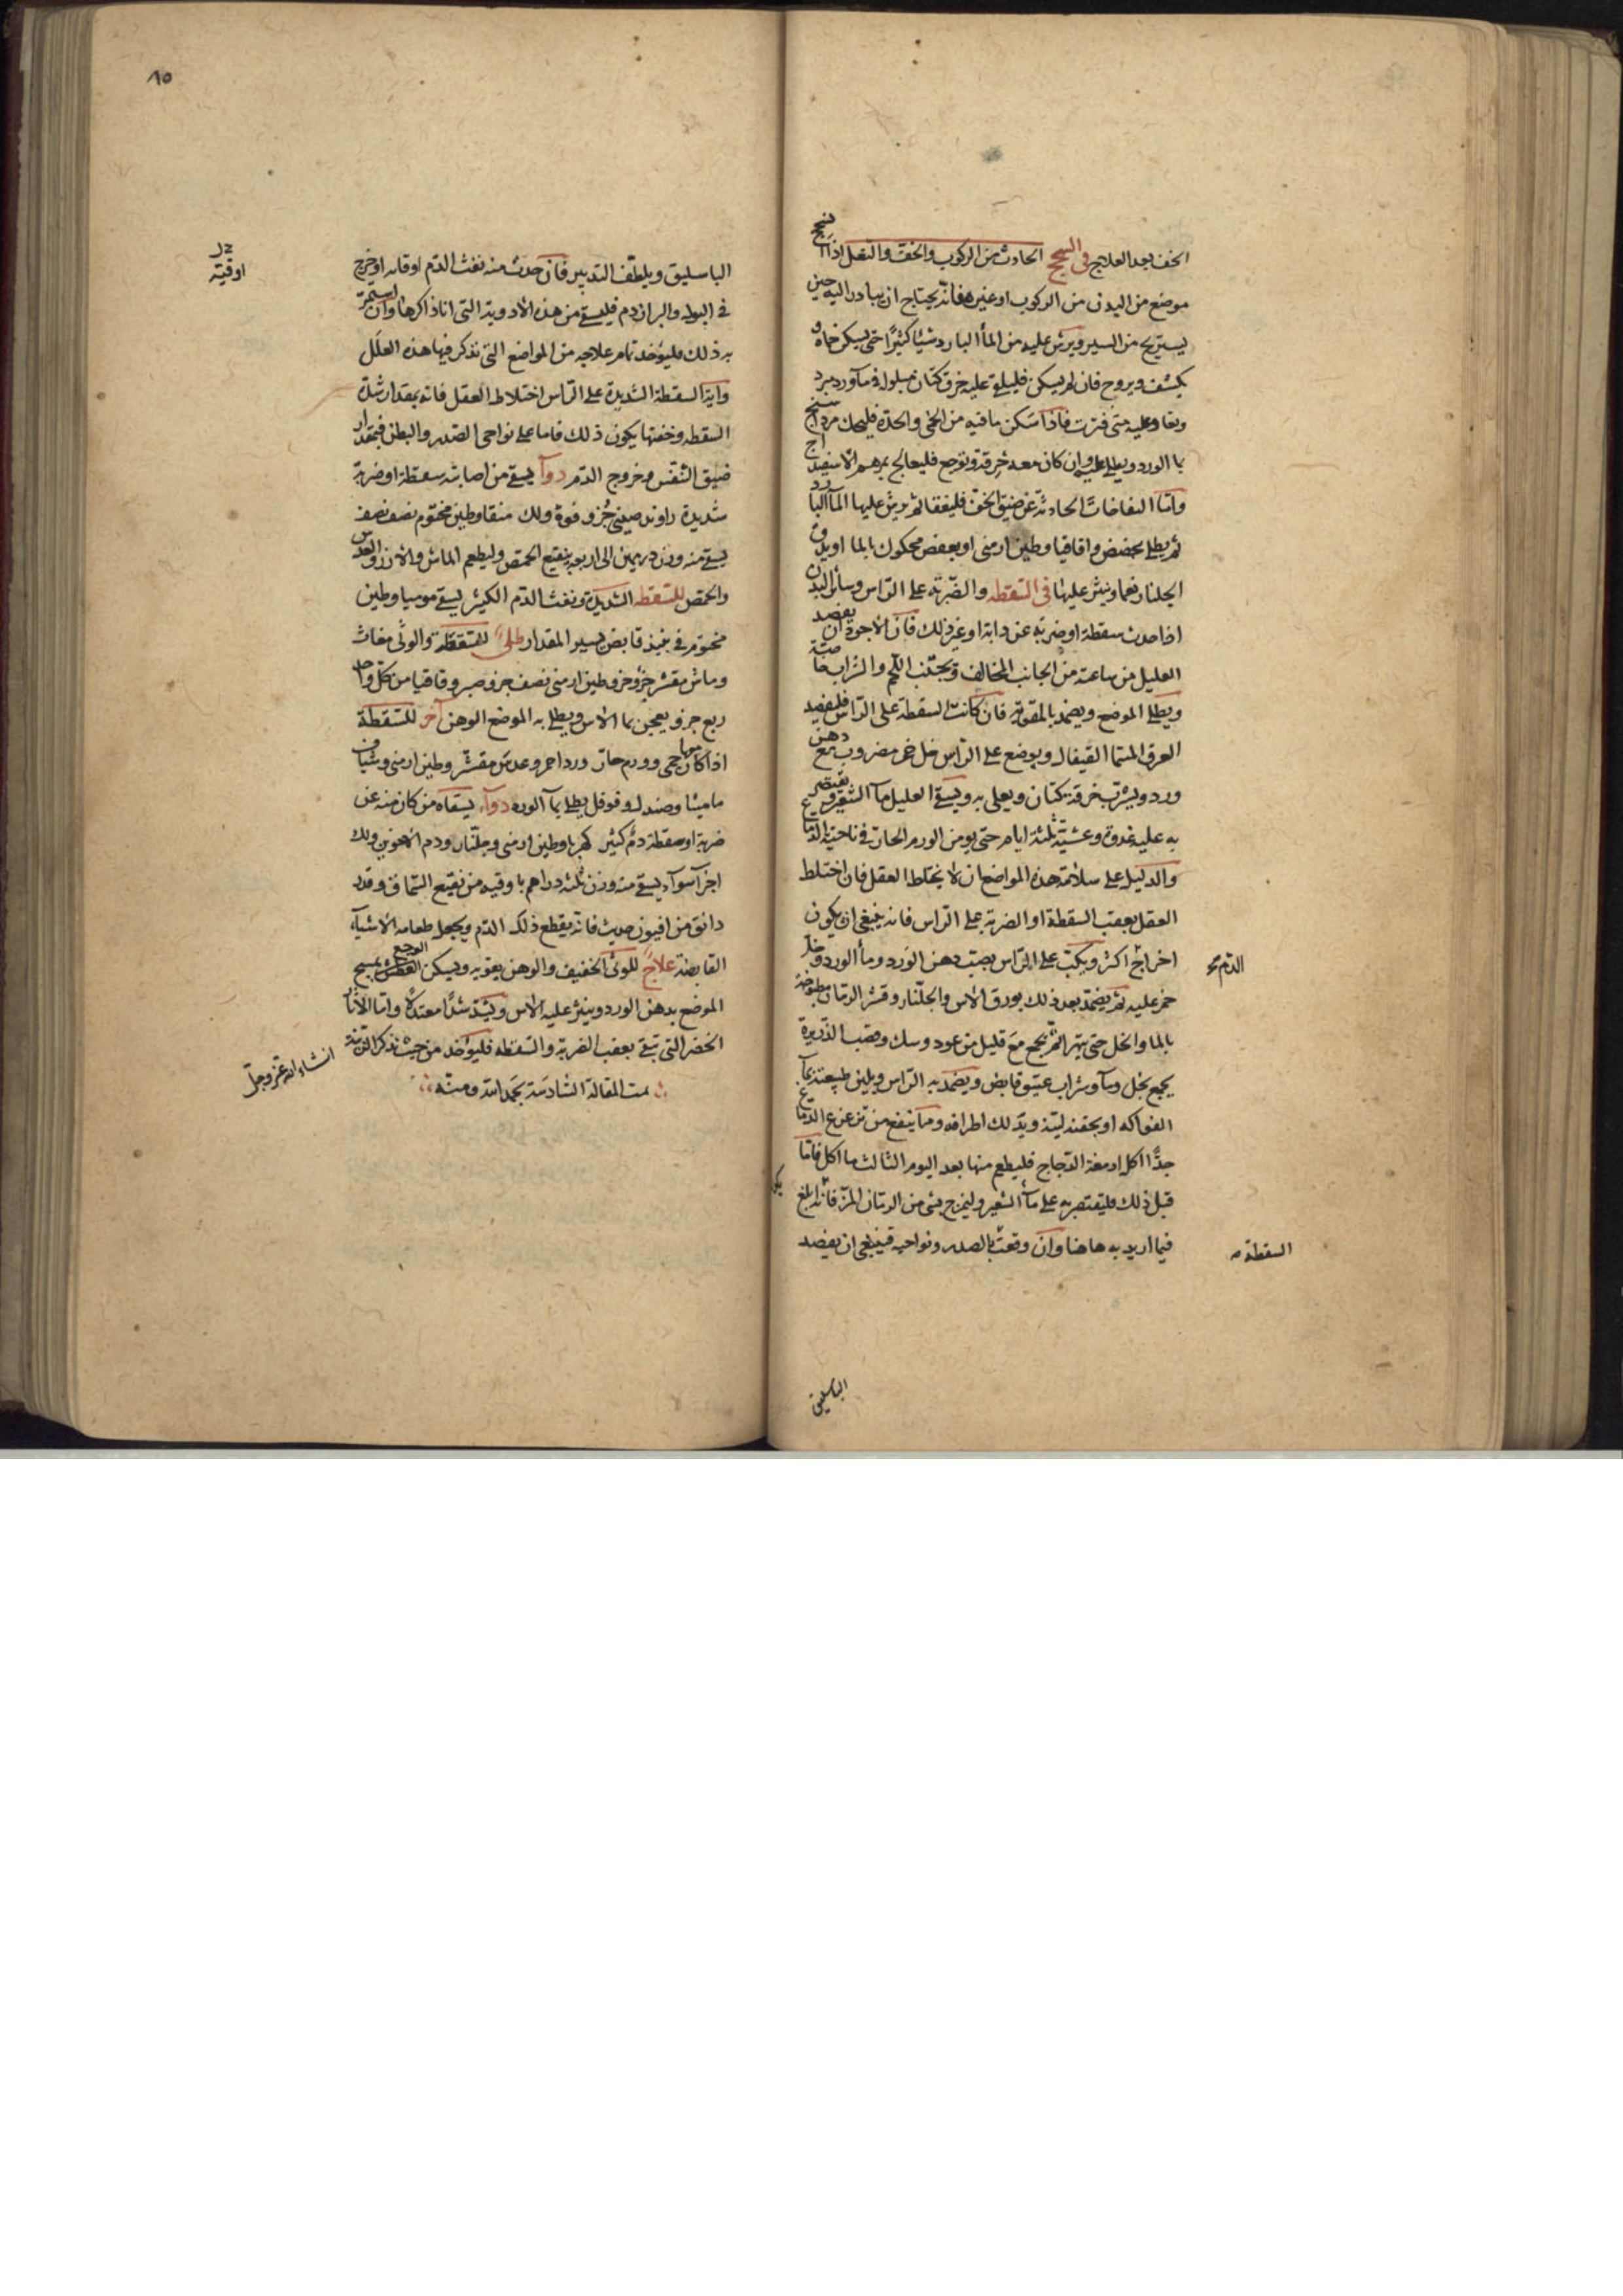 الخف بعد العلاج في السحج الحادث من الركوب والخف والنعل اذا انسحج
موضع من البدن من الركوب او غيره فانه يحتاج ان يبادر اليه حين
يستريح من السير ويرش عليه من الماء البارد شيئا كثيرا حتى يسكن حماه و
يكشف ويروح فان لم يسكن فليلق عليه خرق كتان مبلولة في ماورد مبرد
وتعاد عليه متى فترت فاذا سكن ما فيه من الحمى والحدة فليحك مرداسنج
بالورد ويطلى عليه وان كان معه خرقة وتوجع فليعالج بمرهم الاسفيداج
واما النفاخات الحادثة عن ضيق الخف فليفقا ثم يرش عليها الماء البارد
ثم يطلى بحضض واقاقيا وطين ارمنى او بعفص محكوك بالما او يدق
الجلنار نعما وينثر عليها في السقطه والضربة على الراس وسائر البدن
اذا حدث سقطة او ضربة عن دابة او غير ذلك فان الاجود ان يفصد
العليل من ساعته من الجانب المخالف ويجتنب اللحم والشراب خاصة
ويطلى الموضع ويضمد بالمقوية فان كانت السقطة على الراس فليفصد
العرق المسما القيفال ويوضع على الراس خل خمر مضروب مع دهن
ورد ويشرب خرقة كتان ويعلى به ويسقى العليل ماء الشعير ويقتصر
به عليه غدوة وعشية ثلثة ايام حتى يومن الورم الحار في ناحية الدماغ
والدليل على سلامة هذه المواضع ان لا يختلط العقل فان اختلط
العقل بعقب السقطة او الضربة على الراس فانه ينبغى ان يكون
اخراج اكثر ويكب على الراس بصب دهن الورد وماء الورد وخل
الدم صح
خمر عليه ثم يضمد بعد ذلك بورق الاس والجلنار وقشر الرمان مطبوخة
بالما والخل حتى يتهرا ثم يجمع مع قليل من عود وسك وقصب الذريرة
يجمع بخل وماء وشراب عتيق قابض ويضمد به الراس ويلين طبيعته بماء
الفواكه او بحقنه لينة ويدلك اطرافه ومما ينفع من تزعزع الدماغ
جدا اكل ادمغة الدجاج فليطعم منها بعد اليوم الثالث ما اكل فاما
قبل ذلك فليقتصر به على ماء الشعير وليمزج بشى من الرمان المز فانه ابلغ
فيما اريد به هاهنا وان وقعت بالصدر ونواحيه فينبغى ان يفصد
السقطة
الباسليق
٨٥
الباسليق ويلطف التدبير فان حدث منه نفث الدم او قاه او خرج
اوقية
في البول والبراز دم فليسقى من هذه الادوية التى انا ذاكرها وان استمر
به ذلك فليؤخذ تمام علاجه من المواضع التى نذكر فيها هذه العلل
واية السقطة الشديدة على الراس اختلاط العقل فانه بمقدار شدة
السقطه وخفتها يكون ذلك فاما على نواحى الصدر والبطن فبمقدار
ضيق النفس وخروج الدم دوآ يسقى من اصابته سقطة او ضربة
شديدة راوند صينى جزو فوة ولك منقا وطين مختوم نصف نصف
يسقى منه وزن درهمين الى اربعة بنقيع الحمص وليطعم الماش والارز والعدس
والحمص للسقطه الشديدة ونفث الدم الكثير يسقى موميا وطين
مختوم في نبيذ قابض يسير المقدار طلى للسقطة والوثى مغاث
وماش مقشر جزو جزو طين ارمنى نصف جزو صبر وقاقيا من كل واحد
ربع جزو يعجن بما الاس ويطلى به الموضع الوهن اخر للسقطة
اذا كان معها حمى وورم حار ورد احمر وعدس مقشر وطين ارمنى وشياف
ماميثا وصندل وفوفل يطلى بماء الورد دوآء يسقاه من كان منه عن
ضربة او سقطة دم كثير كهربا وطين ارمنى وجلنار ودم الاخوين ولك
اجزآ سوآء يسقى منه وزن ثلثه دراهم باوقيه من نقيع السماق وقدر
دانق من افيون حديث فانه يقطع ذلك الدم ويجعل طعامه الاشيآء
القابضة علاج للوثى الخفيف والوهن يقويه ويسكن الوجع يمسح
الموضع بدهن الورد وينثر عليه الاس ويشد شدا معتدلا واما الاثار
الخضر التى تبقى بعقب الضربة والسقطه فليؤخذ من حيث نذكر الزينة
انشاء الله عز وجل
تمت المقالة السادسة بحمد الله ومنه